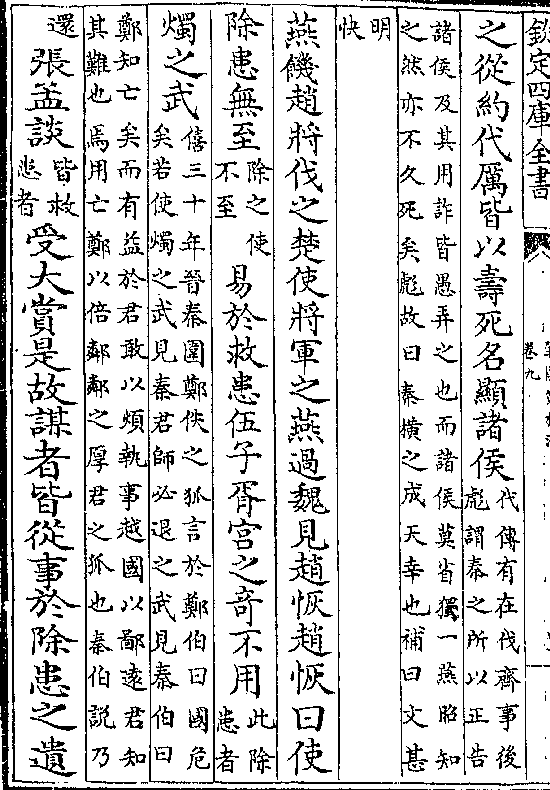 欽定四庫全書
卷九
之從約代厲皆以壽死名顯諸侯代傳有在伐齊事後彪謂秦之所以正告
諸侯及其用詐皆愚弄之也而諸侯莫省獨一燕昭知
之然亦不久死矣彪故曰秦橫之成天幸也補曰文甚
明
快
燕饑趙將伐之楚使將軍之燕過魏見趙恢趙恢曰使
除患無至除之使不至易於救患伍子胥宮之奇不用此除患者
燭之武僖三十年晉秦圍鄭佚之狐言於鄭伯曰國危矣若使燭之武見秦君師必退之武見秦伯曰
鄭知亡矣而有益於君敢以煩執事越國以鄙遠君知
其難也焉用亡鄭以倍鄰鄰之厚君之狐也秦伯説乃
還張孟談皆救患者受大賞是故謀者皆從事於除患之遺